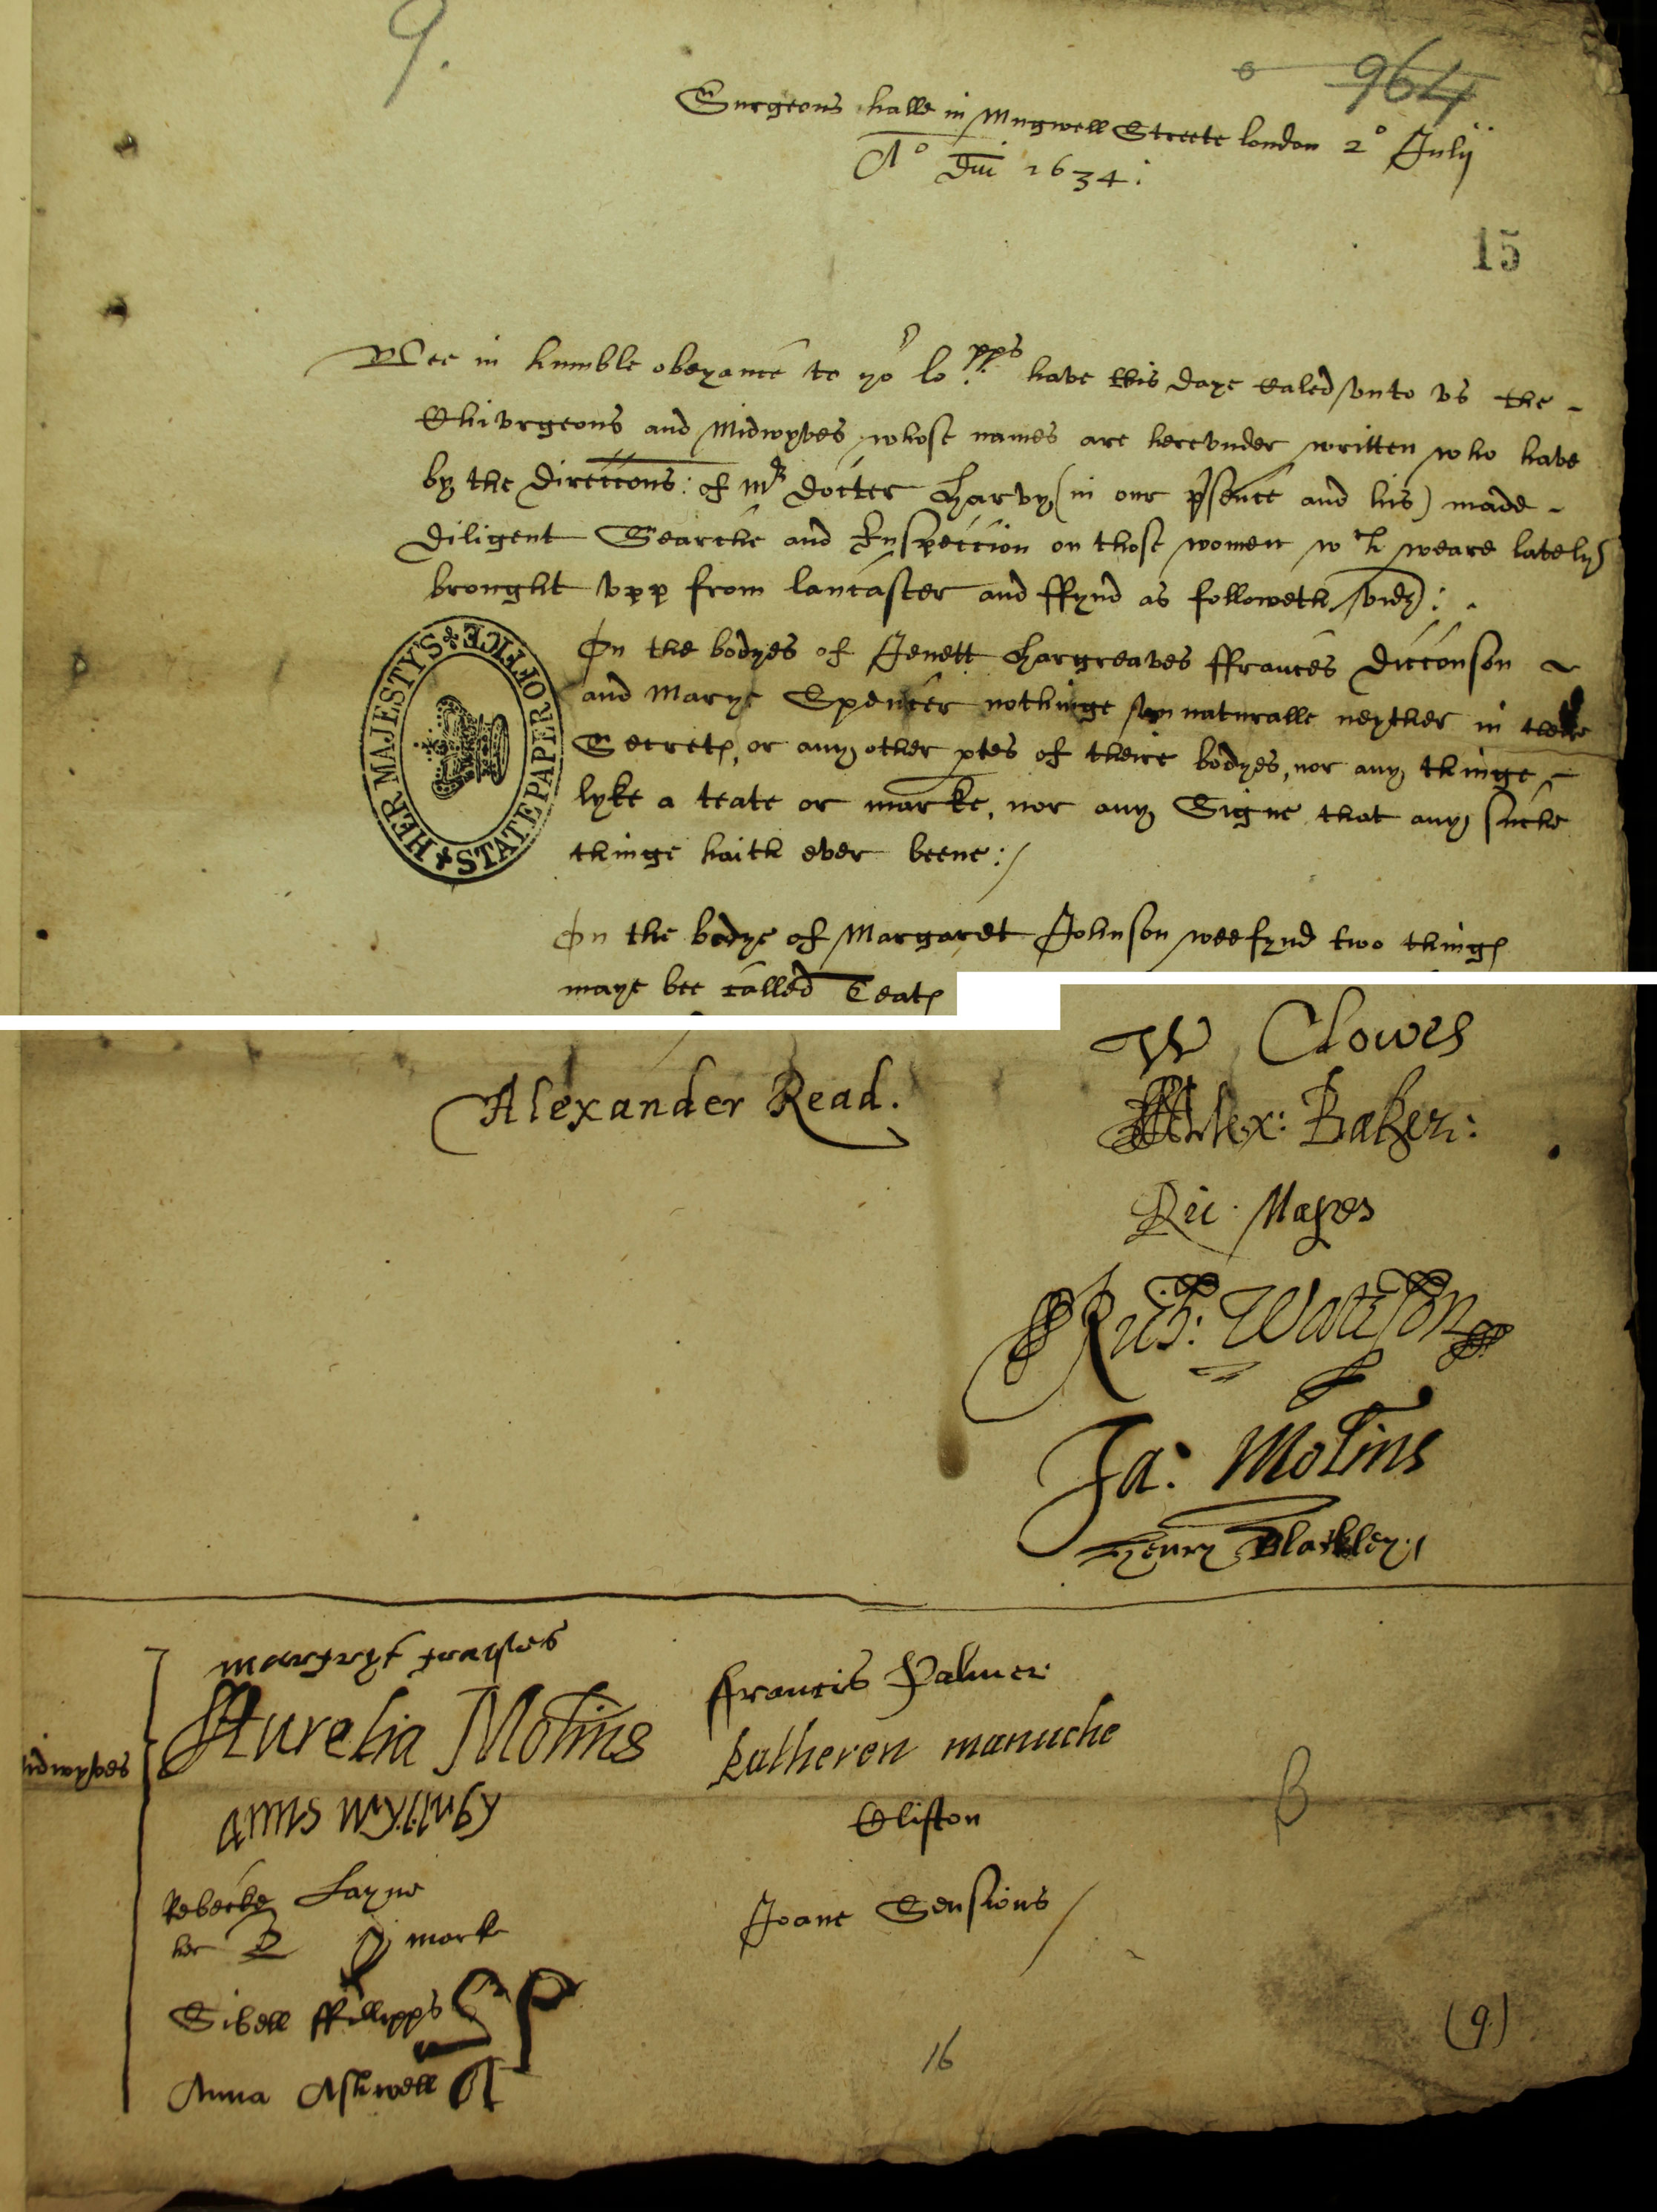 9.
964
Surgeons halle in Mugwell Streete london 2° Julij
A° dni 1634:
15
Wee in humble obeyance to yor lo:pps have this daye caled vnto vs the
Chirurgeons and Midwyves whose names are herevnder written who have
by the direccons: of Mr docter Harvy (in our psence and his) made
diligent Searche and Inspeccion on those women wch weare lately
brought vpp from lancaster and ffynd as followeth vidz:
HER MAJESTY'S STATE PAPER OFFICE
On the bodyes of Jenett Hargreaves ffrances Dicconson
and Marye Spencer nothinge vnnaturalle neyther in their
Secrets, or any other ptes of theire bodyes, nor any thinge
lyke a teate or marke, nor any Signe that any suche
thinge haith ever beene:/
On the bodye of Margaret Johnson wee fynd two things
maye bee called Teats
W Clowes
Alexander Read.
Alex: Baker:
Ric. Mapes
Rich: Wattson
Ja: Molins
Henry Blackley
Francis Palmer
Aurelia Molins
Katheren manuche
idwyves
Clifton
Rebecke Layne
her mark
Joane Sensions
Sibell ffellipps SP
Anna Ashwell A
16
(9)